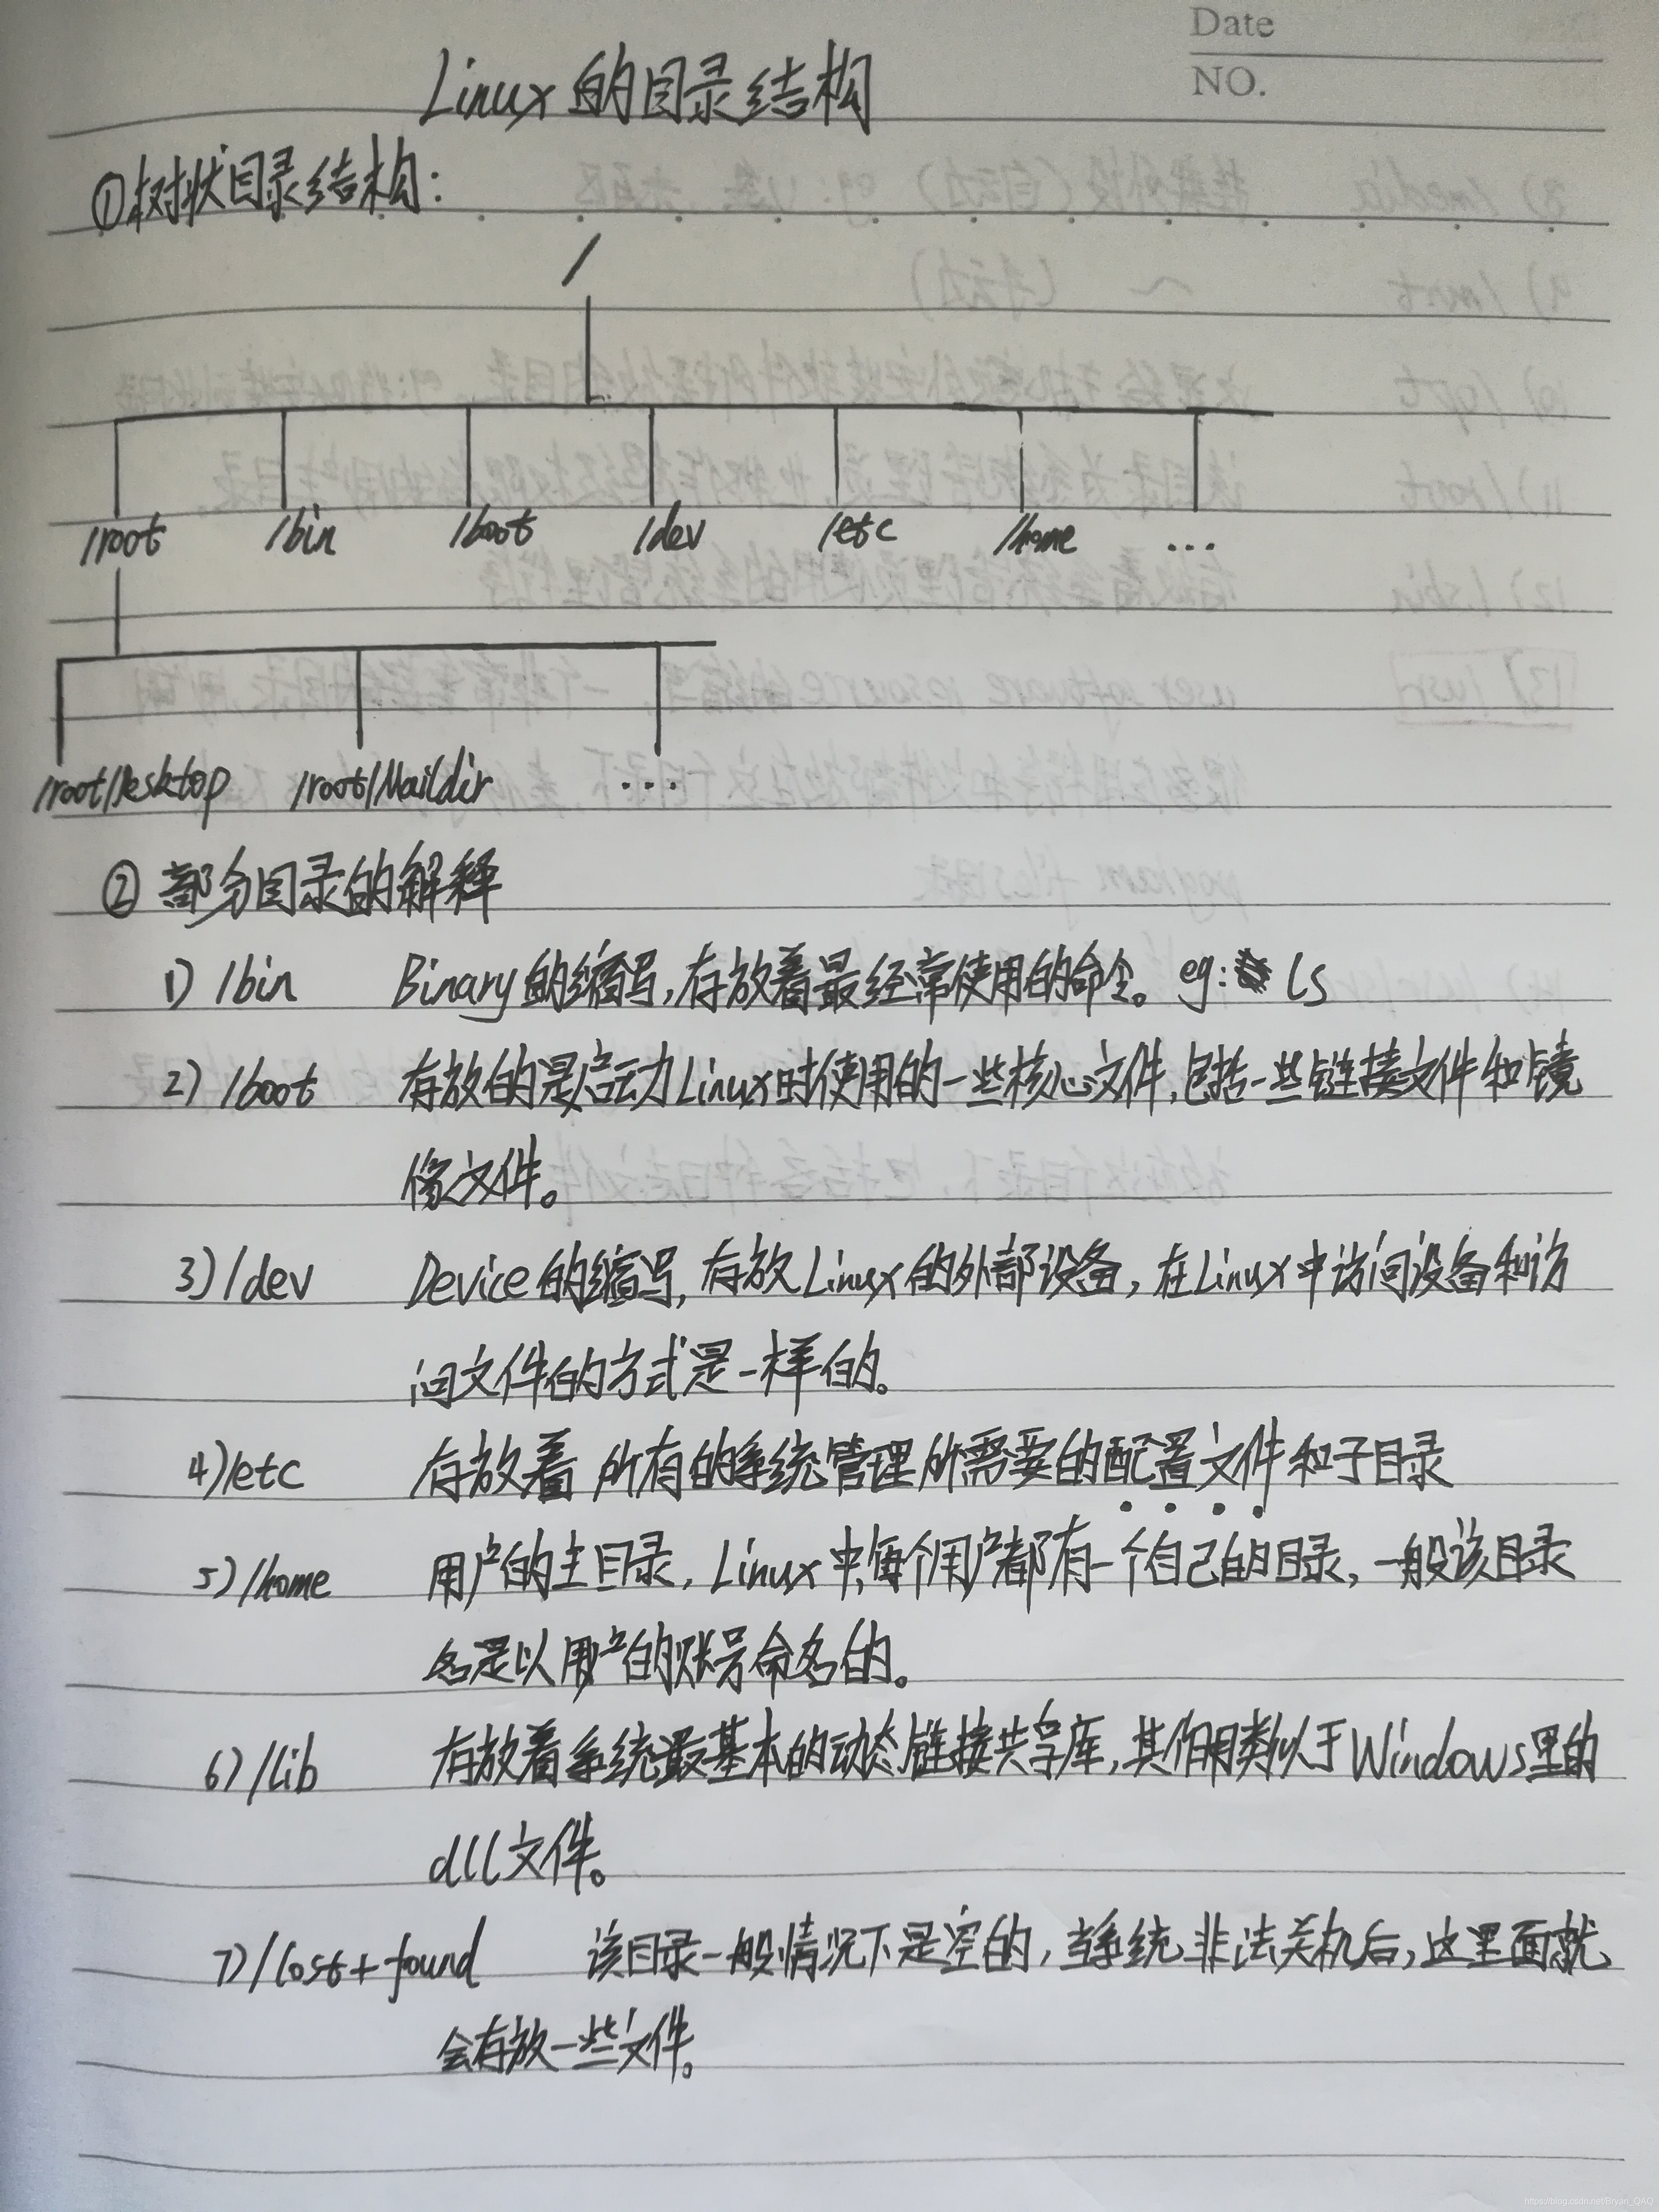 Date
NO.
Linux的目录结构
①树状目录结构:
/
/root /bin /boot /dev /etc /home ...
/root/Desktop /root/Maildir ...
② 部分目录的解释
1) /bin Binary的缩写,存放着最经常使用的命令。eg: ls
2) /boot 存放的是启动Linux时使用的一些核心文件,包括一些链接文件和镜
像文件。
3) /dev Device的缩写,存放Linux的外部设备,在Linux中访问设备和访
问文件的方式是一样的。
4) /etc 存放着所有的系统管理所需要的配置文件和子目录
5) /home 用户的主目录,Linux中,每个用户都有一个自己的目录,一般该目录
名是以用户的账号命名的。
6) /lib 存放着系统最基本的动态链接共享库,其作用类似于Windows里的
dll文件。
7) /lost+found 该目录一般情况下是空的,当系统非法关机后,这里面就
会存放一些文件。
https://blog.csdn.net/Bryan_QAQ